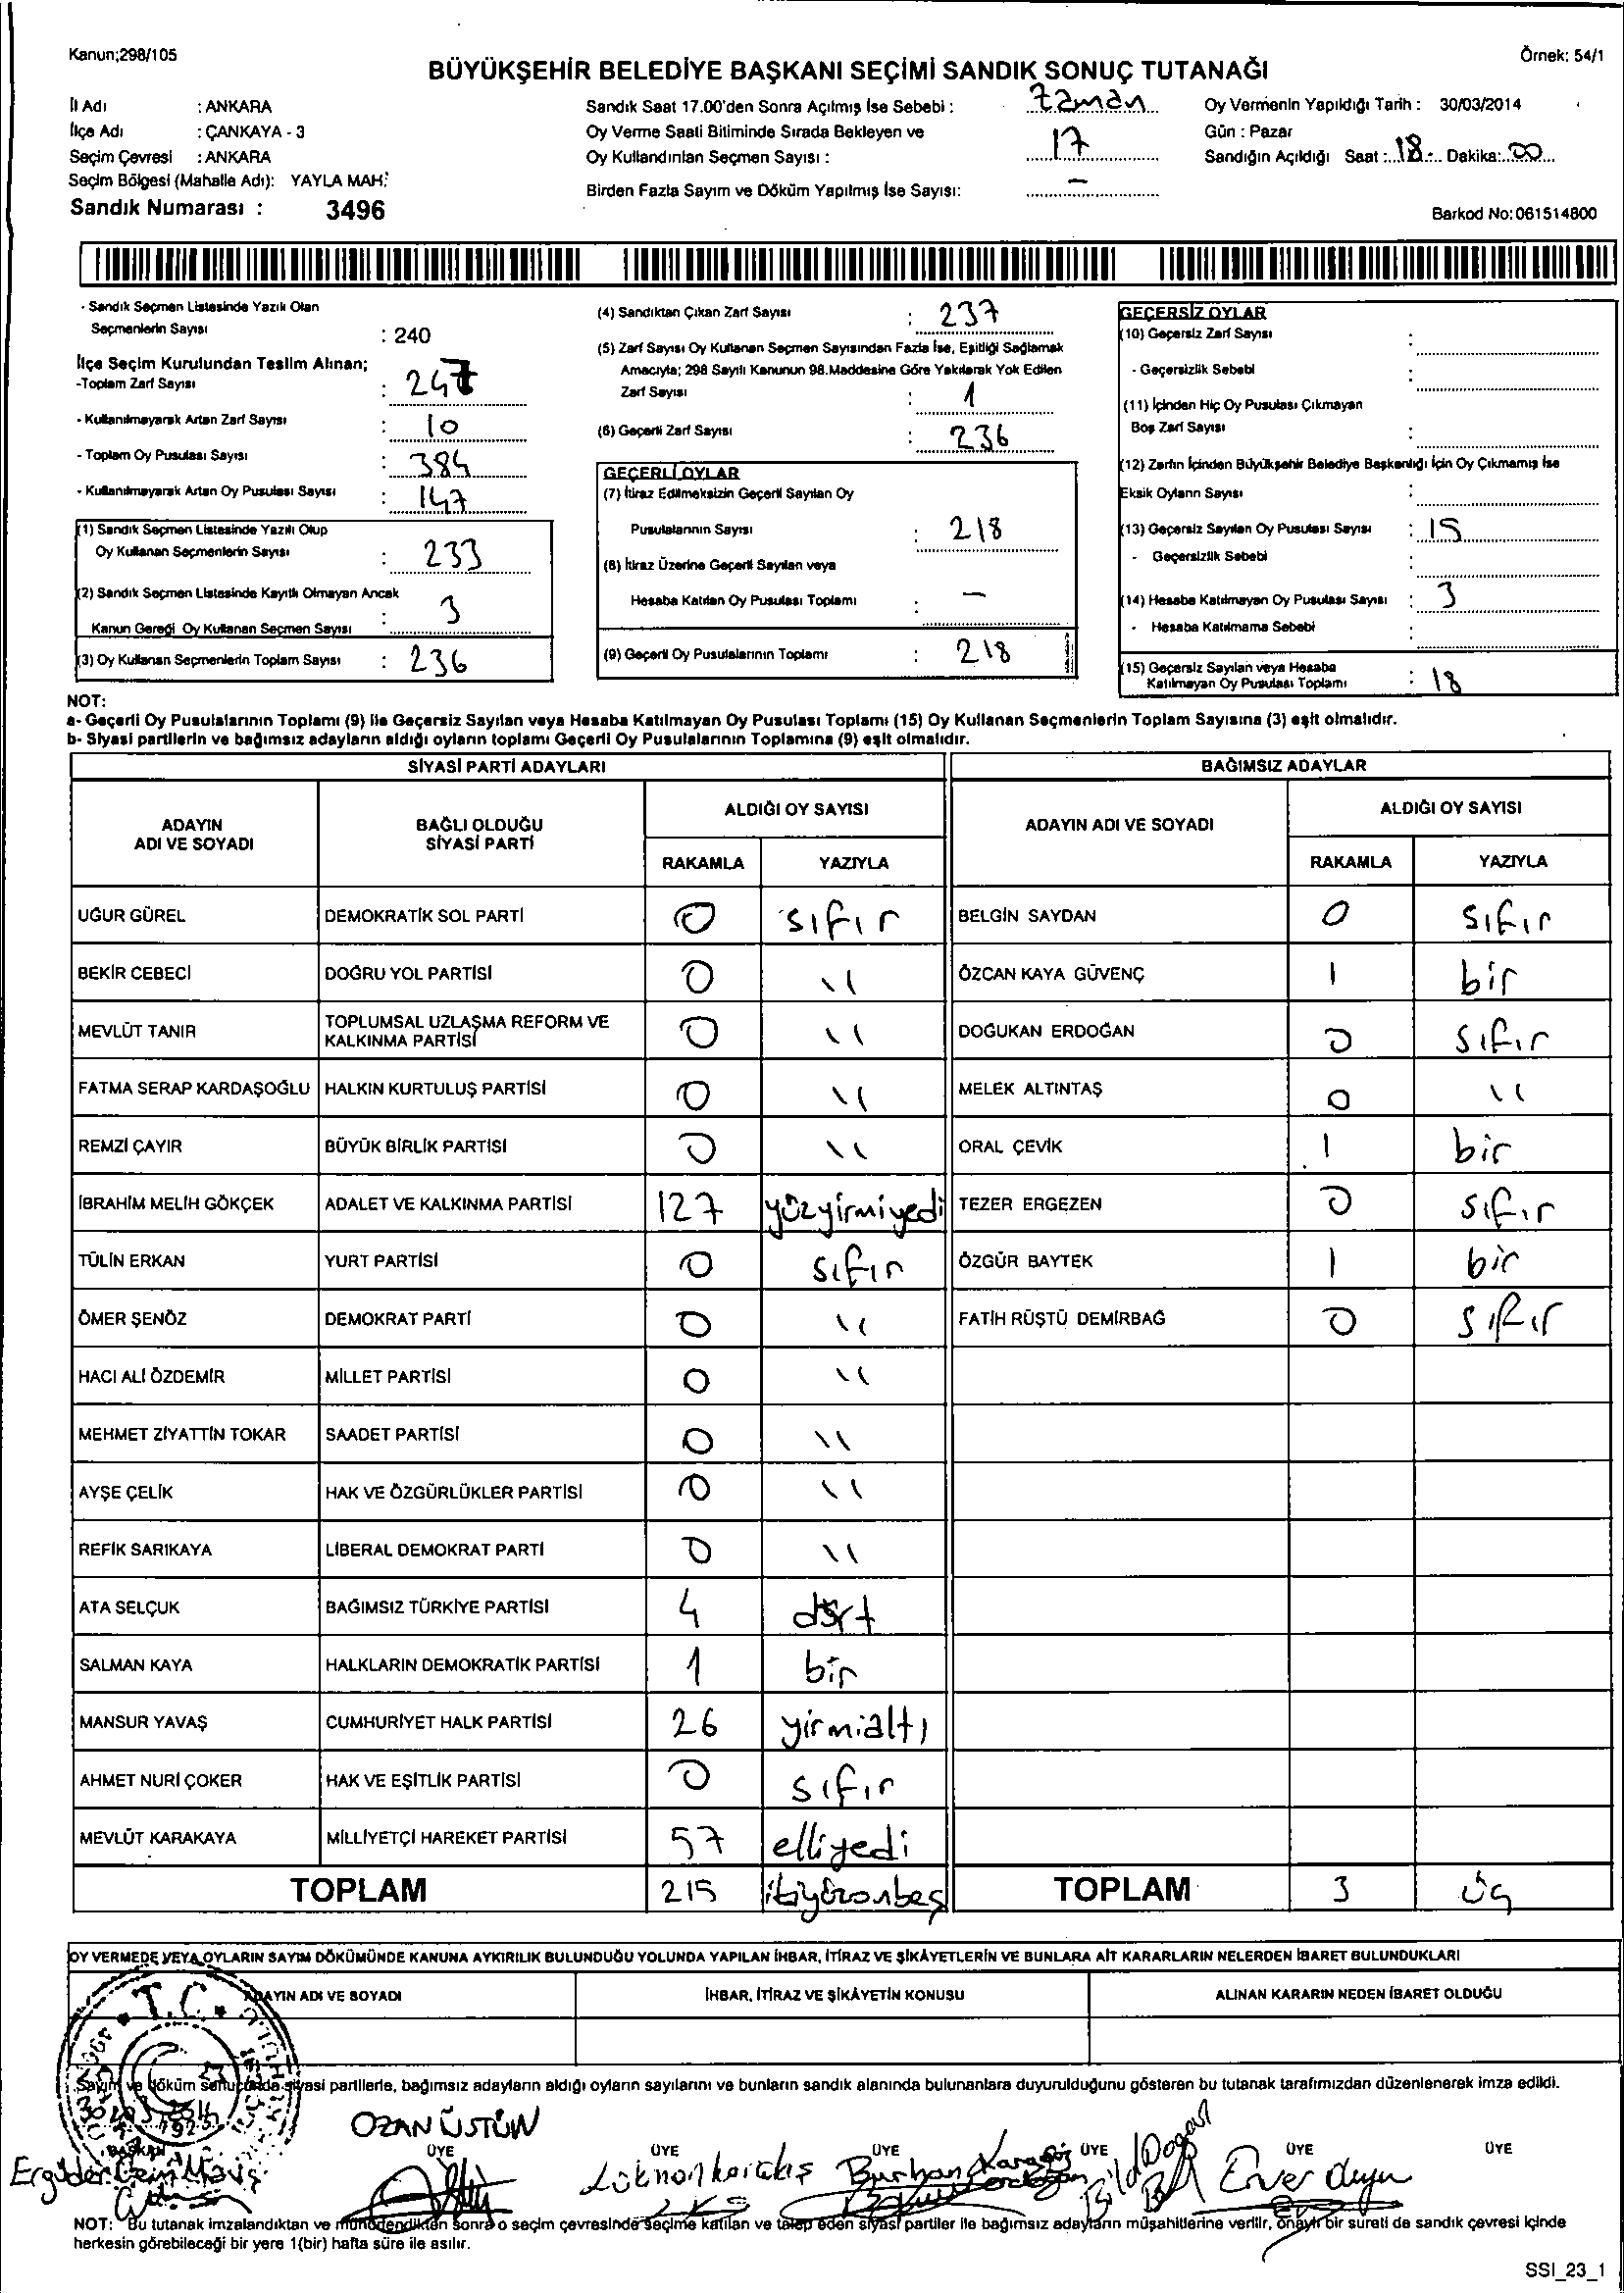 Kanun;298/105
Örnek: 54/1
BÜYÜKŞEHİR BELEDİYE BAŞKANI SEÇİMİ SANDIK SONUÇ TUTANAĞI
İl Adı : ANKARA
İlçe Adı : ÇANKAYA - 3
Seçim Çevresi : ANKARA
Seçim Bölgesi (Mahalle Adı): YAYLA MAH.
Sandık Numarası : 3496
Sandık Saat 17.00'den Sonra Açılmış İse Sebebi : zaman
Oy Verme Saati Bitiminde Sırada Bekleyen ve
Oy Kullandırılan Seçmen Sayısı : 17
Birden Fazla Sayım ve Döküm Yapılmış İse Sayısı: -
Oy Vermenin Yapıldığı Tarih : 30/03/2014
Gün : Pazar
Sandığın Açıldığı Saat : 18 Dakika: 00
Barkod No: 061514800
- Sandık Seçmen Listesinde Yazılı Olan
Seçmenlerin Sayısı : 240
İlçe Seçim Kurulundan Teslim Alınan;
-Toplam Zarf Sayısı : 247
- Kullanılmayarak Artan Zarf Sayısı : 10
- Toplam Oy Pusulası Sayısı : 384
- Kullanılmayarak Artan Oy Pusulası Sayısı : 147
(1) Sandık Seçmen Listesinde Yazılı Olup
Oy Kullanan Seçmenlerin Sayısı : 233
(2) Sandık Seçmen Listesinde Kayıtlı Olmayan Ancak
Kanun Gereği Oy Kullanan Seçmen Sayısı : 3
(3) Oy Kullanan Seçmenlerin Toplam Sayısı : 236
(4) Sandıktan Çıkan Zarf Sayısı : 237
(5) Zarf Sayısı Oy Kullanan Seçmen Sayısından Fazla İse, Eşitliği Sağlamak
Amacıyla; 298 Sayılı Kanunun 98.Maddesine Göre Yakılarak Yok Edilen
Zarf Sayısı : 1
(6) Geçerli Zarf Sayısı : 236
GEÇERLİ OYLAR
(7) İtiraz Edilmeksizin Geçerli Sayılan Oy
Pusulalarının Sayısı : 218
(8) İtiraz Üzerine Geçerli Sayılan veya
Hesaba Katılan Oy Pusulası Toplamı : -
(9) Geçerli Oy Pusulalarının Toplamı : 218
GEÇERSİZ OYLAR
(10) Geçersiz Zarf Sayısı :
- Geçersizlik Sebebi :
(11) İçinden Hiç Oy Pusulası Çıkmayan
Boş Zarf Sayısı :
(12) Zarfın İçinden Büyükşehir Belediye Başkanlığı İçin Oy Çıkmamış İse
Eksik Oyların Sayısı :
(13) Geçersiz Sayılan Oy Pusulası Sayısı : 15
- Geçersizlik Sebebi :
(14) Hesaba Katılmayan Oy Pusulası Sayısı : 3
- Hesaba Katılmama Sebebi :
(15) Geçersiz Sayılan veya Hesaba
Katılmayan Oy Pusulası Toplamı : 18
NOT:
a- Geçerli Oy Pusulalarının Toplamı (9) ile Geçersiz Sayılan veya Hesaba Katılmayan Oy Pusulası Toplamı (15) Oy Kullanan Seçmenlerin Toplam Sayısına (3) eşit olmalıdır.
b- Siyasi partilerin ve bağımsız adayların aldığı oyların toplamı Geçerli Oy Pusulalarının Toplamına (9) eşit olmalıdır.
SİYASİ PARTİ ADAYLARI BAĞIMSIZ ADAYLAR
ADAYIN ADI VE SOYADI BAĞLI OLDUĞU SİYASİ PARTİ ALDIĞI OY SAYISI ADAYIN ADI VE SOYADI ALDIĞI OY SAYISI
RAKAMLA YAZIYLA RAKAMLA YAZIYLA
UĞUR GÜREL DEMOKRATİK SOL PARTİ 0 sıfır BELGİN SAYDAN 0 sıfır
BEKİR CEBECİ DOĞRU YOL PARTİSİ 0 \\ ÖZCAN KAYA GÜVENÇ 1 bir
MEVLÜT TANIR TOPLUMSAL UZLAŞMA REFORM VE KALKINMA PARTİSİ 0 \\ DOĞUKAN ERDOĞAN 0 sıfır
FATMA SERAP KARDAŞOĞLU HALKIN KURTULUŞ PARTİSİ 0 \\ MELEK ALTINTAŞ 0 \\
REMZİ ÇAYIR BÜYÜK BİRLİK PARTİSİ 0 \\ ORAL ÇEVİK 1 bir
İBRAHİM MELİH GÖKÇEK ADALET VE KALKINMA PARTİSİ 127 yüzyirmiyedi TEZER ERGEZEN 0 sıfır
TÜLİN ERKAN YURT PARTİSİ 0 sıfır ÖZGÜR BAYTEK 1 bir
ÖMER ŞENÖZ DEMOKRAT PARTİ 0 \\ FATİH RÜŞTÜ DEMİRBAĞ 0 sıfır
HACI ALİ ÖZDEMİR MİLLET PARTİSİ 0 \\
MEHMET ZİYATTİN TOKAR SAADET PARTİSİ 0 \\
AYŞE ÇELİK HAK VE ÖZGÜRLÜKLER PARTİSİ 0 \\
REFİK SARIKAYA LİBERAL DEMOKRAT PARTİ 0 \\
ATA SELÇUK BAĞIMSIZ TÜRKİYE PARTİSİ 4 dört
SALMAN KAYA HALKLARIN DEMOKRATİK PARTİSİ 1 bir
MANSUR YAVAŞ CUMHURİYET HALK PARTİSİ 26 yirmialtı
AHMET NURİ ÇOKER HAK VE EŞİTLİK PARTİSİ 0 sıfır
MEVLÜT KARAKAYA MİLLİYETÇİ HAREKET PARTİSİ 57 elliyedi
TOPLAM 215 ikiyüzonbeş TOPLAM 3 üç
OY VERMEDE VEYA OYLARIN SAYIM DÖKÜMÜNDE KANUNA AYKIRILIK BULUNDUĞU YOLUNDA YAPILAN İHBAR, İTİRAZ VE ŞİKÂYETLERİN VE BUNLARA AİT KARARLARIN NELERDEN İBARET BULUNDUKLARI
ADAYIN ADI VE SOYADI İHBAR, İTİRAZ VE ŞİKÂYETİN KONUSU ALINAN KARARIN NEDEN İBARET OLDUĞU
T.C.
Sayım ve döküm sonucunda siyasi partilerle, bağımsız adayların aldığı oyların sayılarını ve bunların sandık alanında bulunanlara duyurulduğunu gösteren bu tutanak tarafımızdan düzenlenerek imza edildi.
OZAN ÜSTÜN
BAŞKAN ÜYE ÜYE ÜYE ÜYE ÜYE ÜYE
Lokman Karakaş Burhan Enver Duyu
NOT: Bu tutanak imzalandıktan ve mühürlendikten sonra o seçim çevresinde seçime katılan ve talep eden siyasi partiler ile bağımsız adayların müşahitlerine verilir, onaylı bir sureti de sandık çevresi içinde
herkesin görebileceği bir yere 1(bir) hafta süre ile asılır.
SSI_23_1